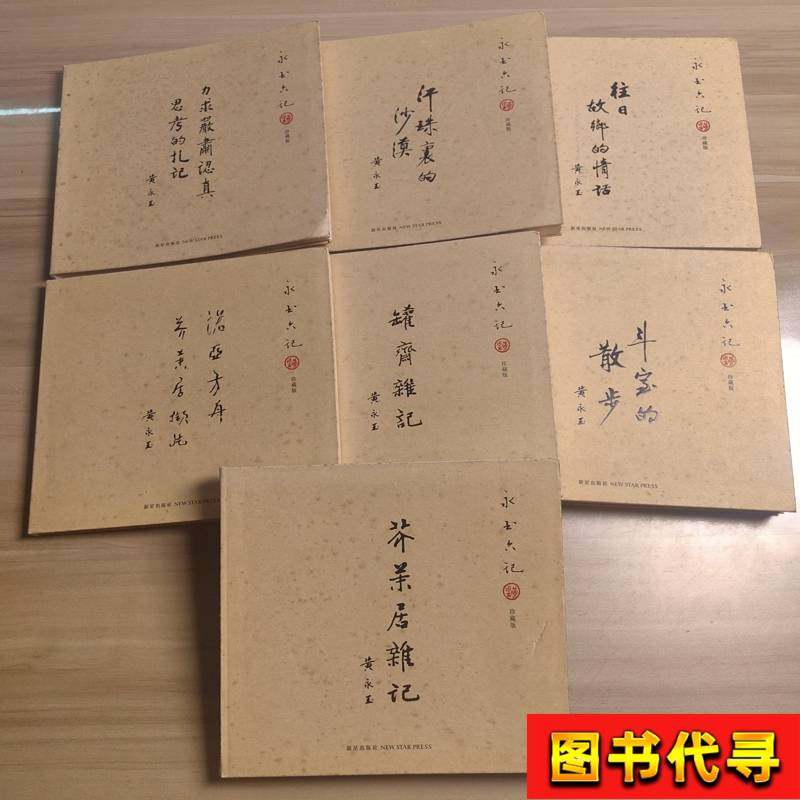 永玉六记
珍藏版
力求嚴肅認真
思考的札记
黄永玉
新星出版社 NEW STAR PRESS
永玉六记
珍藏版
汗珠裏的
沙漠
黄永玉
新星出版社 NEW STAR PRESS
永玉六记
珍藏版
往日
故鄉的情話
黄永玉
新星出版社 NEW STAR PRESS
永玉六记
珍藏版
諾亞方舟
芥茉居擬告
黄永玉
新星出版社 NEW STAR PRESS
永玉六记
珍藏版
罐齋雜記
黄永玉
永玉六记
珍藏版
斗室的
散步
黄永玉
新星出版社 NEW STAR PRESS
永玉六记
珍藏版
芥茉居雜记
黄永玉
新星出版社 NEW STAR PRESS
图书代寻